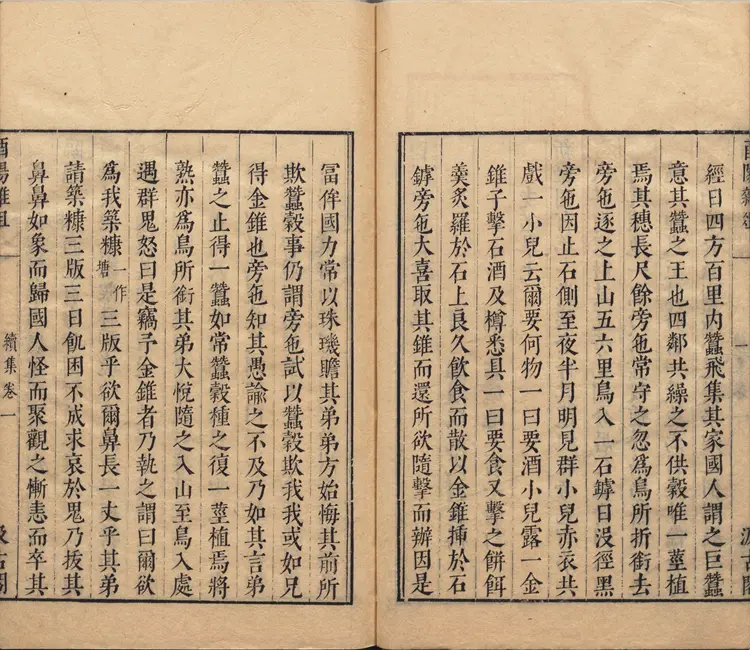 經日四方百里內蠶飛集其家國人謂之巨蠶
意其蠶之王也四鄰共繰之不供穀唯一莖植
焉其穗長尺餘旁㐌常守之忽爲鳥所折銜去
旁㐌逐之上山五六里鳥入一石罅日没徑黑
旁㐌因止石側至夜半月明見群小兒赤衣共
戲一小兒云爾要何物一曰要酒小兒露一金
錐子擊石酒及樽悉具一曰要食又擊之餅餌
羹炙羅於石上良久飲食而散以金錐揷於石
罅旁㐌大喜取其錐而還所欲隨擊而辦因是
冨侔國力常以珠璣贍其弟弟方始悔其前所
欺蠶穀事仍謂旁㐌試以蠶穀欺我我或如兄
得金錐也旁㐌知其愚諭之不及乃如其言弟
蠶之止得一蠶如常蠶穀種之復一莖植焉將
熟亦爲鳥所銜其弟大悅隨之入山至鳥入處
遇群鬼怒曰是竊予金錐者乃執之謂曰爾欲
爲我築糠一作塘三版乎欲爾鼻長一丈乎其弟
請築糠三版三日飢困不成求哀於鬼乃拔其
鼻鼻如象而歸國人怪而聚觀之慚恚而卒其
酉陽雜俎 續集卷一 汲古閣